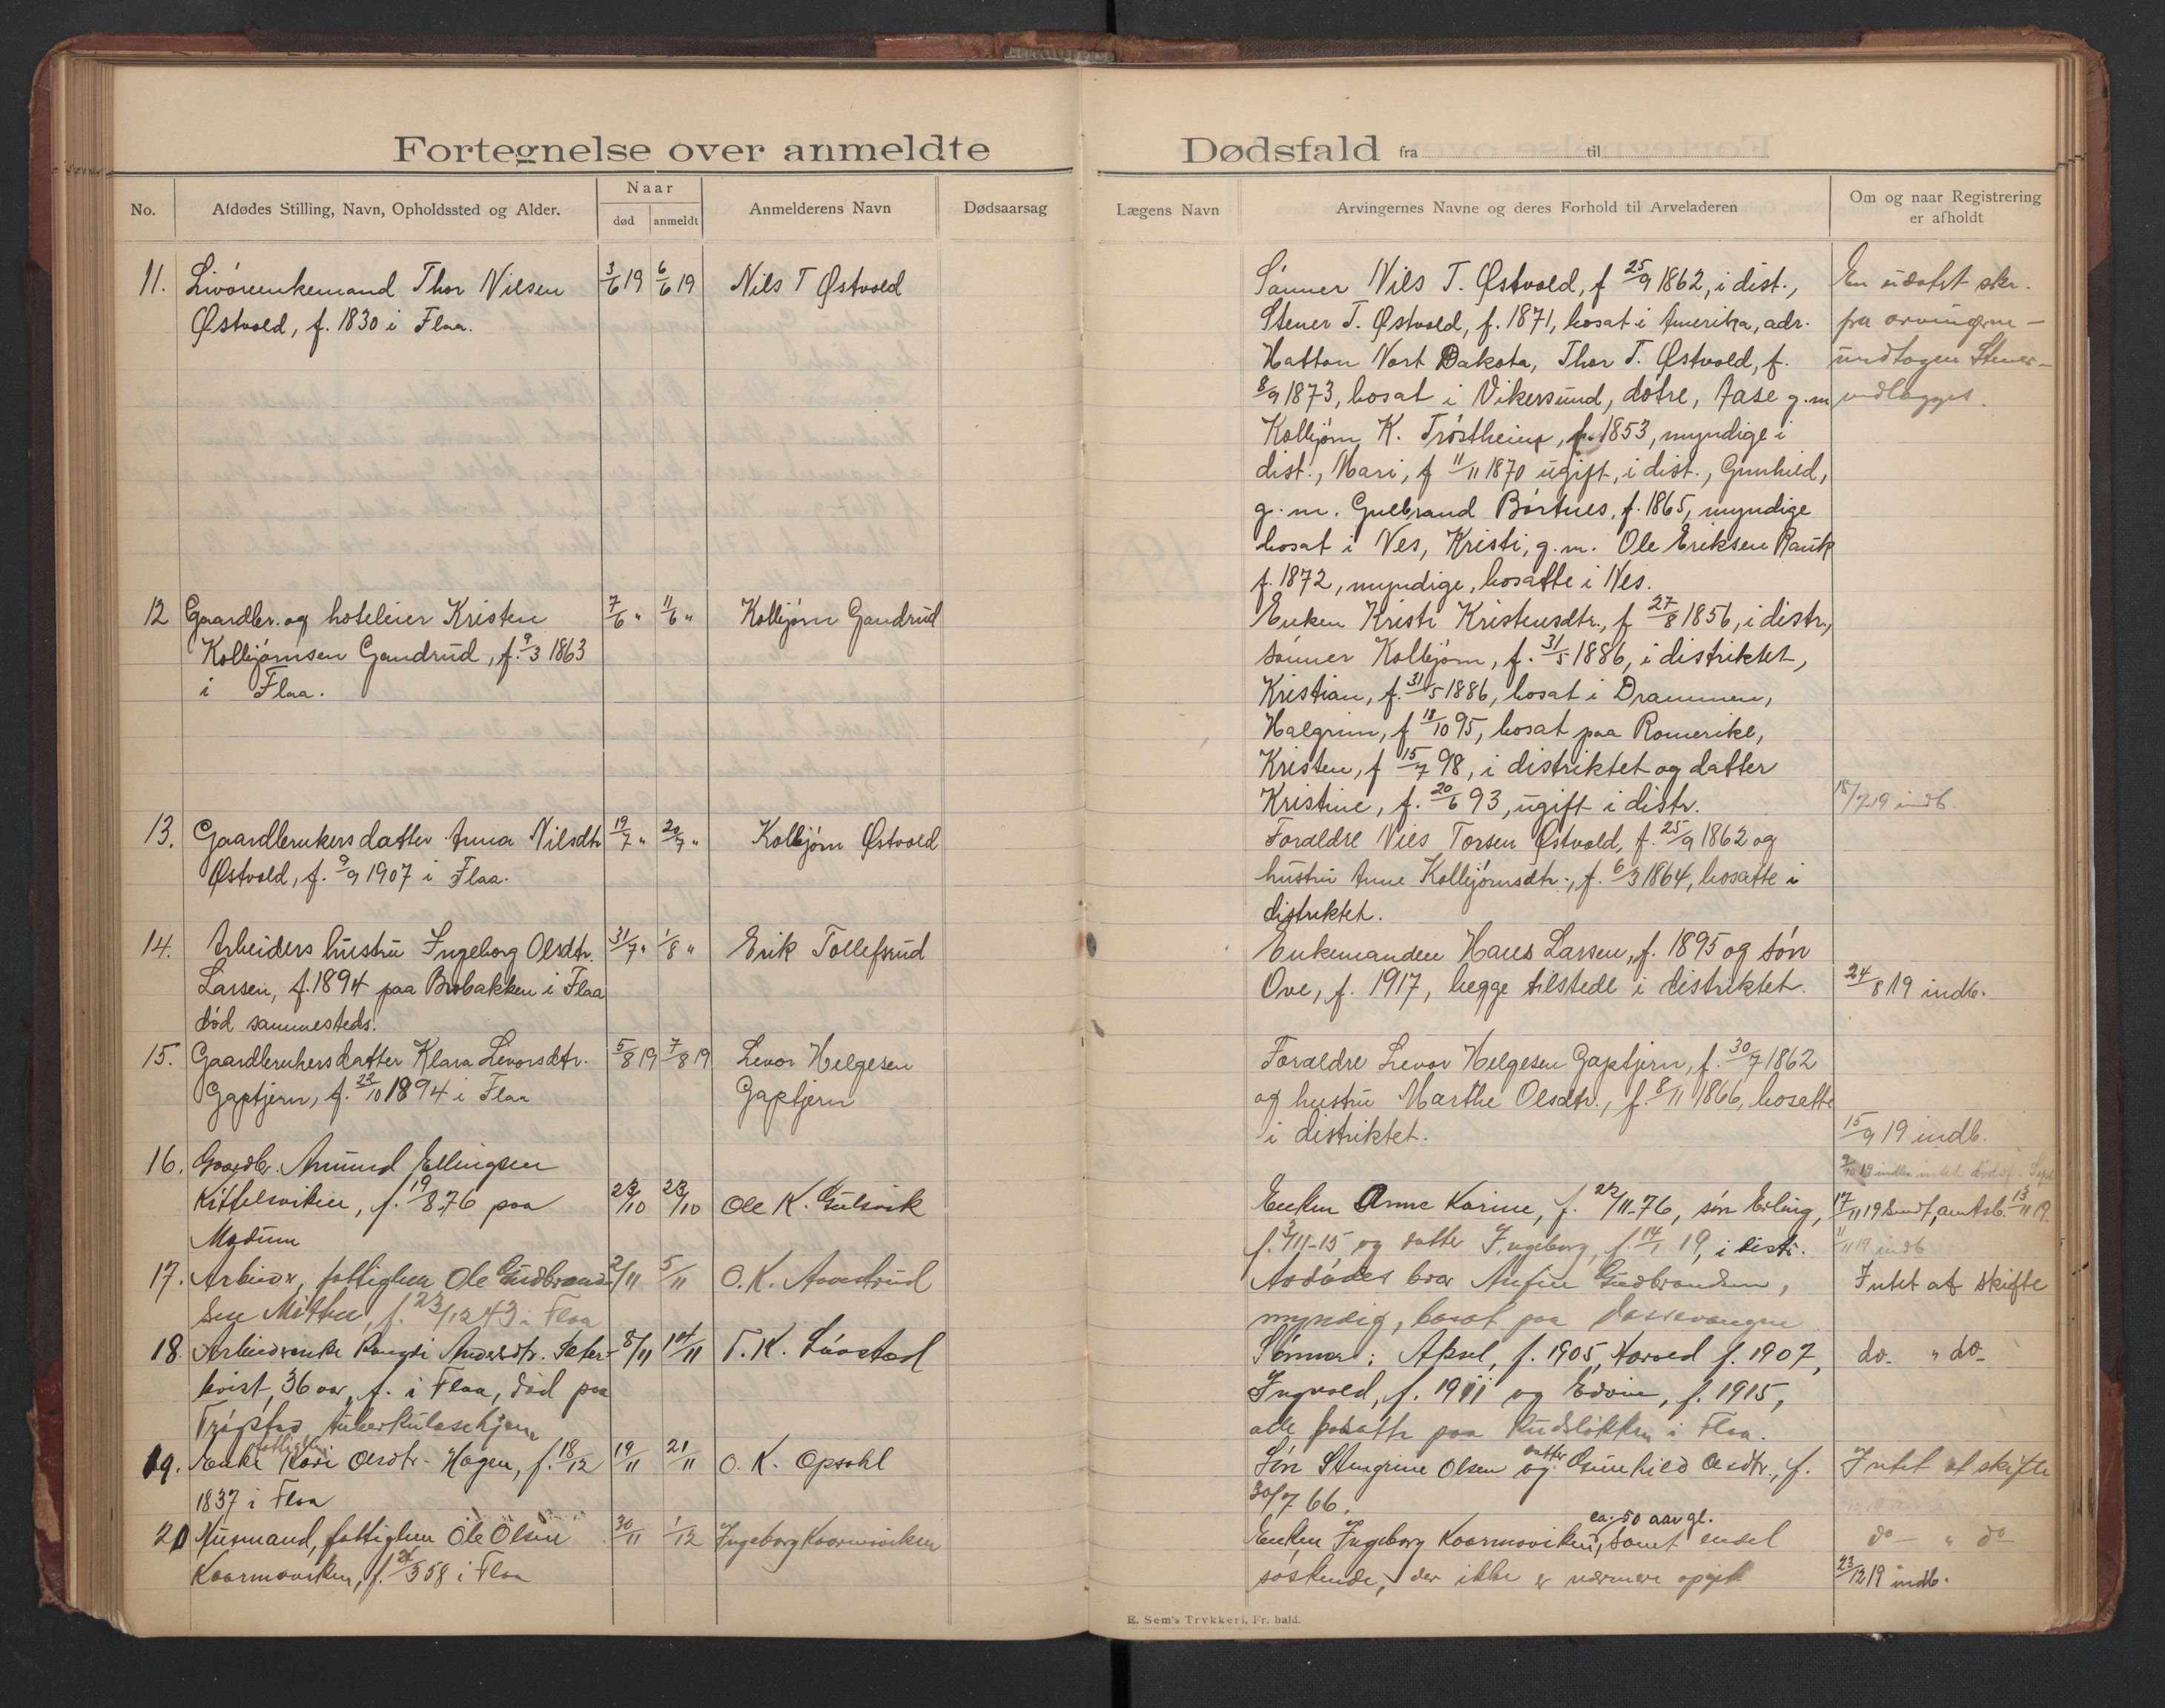 Fortegnelse over anmeldte Dødsfald fra til
No.
Afdødes Stilling, Navn, Opholdssted og Alder.
Naar
død
anmeldt
Anmelderens Navn
Dødsaarsag
Lægens Navn
Arvingernes Navne og deres Forhold til Arveladeren
Om og naar Registrering
er afholdt
11. Livöreenkemand Thor Nilsen 3/6 19 6/6 19 Nils T Østvold
Østvold, f. 1830 i Flaa.
Sönner Nils T. Østvold, f 25/9 1862, i dist.,
Stener T. Østvold, f. 1871, bosat i Amerika, adr.
Hatton Nort Dakota, Thor T. Østvold, f.
8/9 1873, bosat i Vikersund, dötre, Aase g.m
Kolbjörn K. Tröstheim, f. 1853, myndige i
dist., Mari, f 11/11 1870 ugift, i dist., Gunhild,
g.m. Gulbrand Börtnes, f. 1865, myndige
bosat i Nes, Kristi, g.m. Ole Eriksen Rauk
f. 1872, myndige, bosatte i Nes.
En uidatet skr.
fra arvingerne -
undtagen Stener -
vedlægges.
12 Gaardbr. og hoteleier Kristen 7/6 " 11/6 " Kolbjörn Gandrud
Kolbjörnsen Gandrud, f. 9/3 1863
i Flaa.
Enken Kristi Kristensdtr., f 27/8 1856, i distr.,
sönner Kolbjörn, f. 31/5 1886, i distriktet,
Kristian, f. 31/5 1886, bosat i Drammen,
Halgrim, f 18/10 95, bosat paa Romerike,
Kristen, f 15/7 98, i distriktet og datter
Kristine, f. 20/6 93, ugift i distr.
18/7 19 indb.
13. Gaardbrukersdatter Anna Nilsdtr 19/7 " 20/7 " Kolbjörn Østvold
Østvold, f. 9/9 1907 i Flaa.
Forældre Nils Torsen Østvold, f. 25/9 1862 og
hustru Anne Kolbjörnsdtr., f. 6/3 1864, bosatte i
distriktet.
14. Arbeiders hustru Ingeborg Olsdtr. 31/7 " 1/8 " Erik Tollefsrud
Larsen, f. 1894 paa Brobakken i Flaa
död sammesteds.
Enkemanden Hans Larsen, f. 1895 og sön
Ove, f. 1917, begge tilstede i distriktet.
24/8 19 indb.
15. Gaardbrukersdatter Klara Levorsdtr. 5/8 19 7/8 19 Levor Helgesen
Gaptjern, f. 22/10 1894 i Flaa Gaptjern
Forældre Levor Helgesen Gaptjern, f. 30/7 1862
og hustru Marthe Olsdtr., f. 8/11 1866, bosatte
i distriktet.
15/9 19 indb.
16. Gaardbr. Amund Ellingsen
Kittelsviken, f. 19/8 76 paa 23/10 23/10 Ole K. Gulsvik
Modum
9/10 19 indb. intet dödsf. Sept
Enken Anne Karine, f. 22/11-76, sön Erling,
f. 3/11-15 og datter Ingeborg, f. 14/1 19, i distr.
17/11 19 Sendt, amtsb. 13/11 19.
11/11 19 indb
17. Arbeider, fattiglem Ole Gudbrand- 2/11 5/11 O. K. Aavestrud
sen Möthe, f. 23/12 43 i Flaa
Avdödes bror Anfin Gudbrandsen,
myndig, bosat paa
Intet at skifte
18. Arbeiderenke Rangdi Andersdtr. Sæter- 8/11 14/11 T. K. Sævstad
kvist, 36 aar, f. i Flaa, död paa
tuberkulosehjem
Sönner: Aksel, f. 1905, Harald f. 1907,
Ingvald, f. 1911 og Edvin, f. 1915,
alle bosatte paa Rudslökken i Flaa.
do. " do.
19. Enke fattiglem Kari Olsdtr. Hagen, f. 18/12 19/11 21/11 O. K. Opsahl
1837 i Flaa
Sön Stengrim Olsen og datter Gunhild Olsdtr., f.
30/7 66.
Intet at skifte
20 Husmand, fattiglem Ole Olsen 30/11 1/12 Ingeborg Kaarmoviken
Kaarmoviken, f. 21/3 58 i Flaa
Enken Ingeborg Kaarmoviken, ca. 50 aar gl. samt endel
söskende, der ikke er nærmere opgit
do - " do
23/12 19 indb.
E. Sem's Trykkeri, Fr. hald.